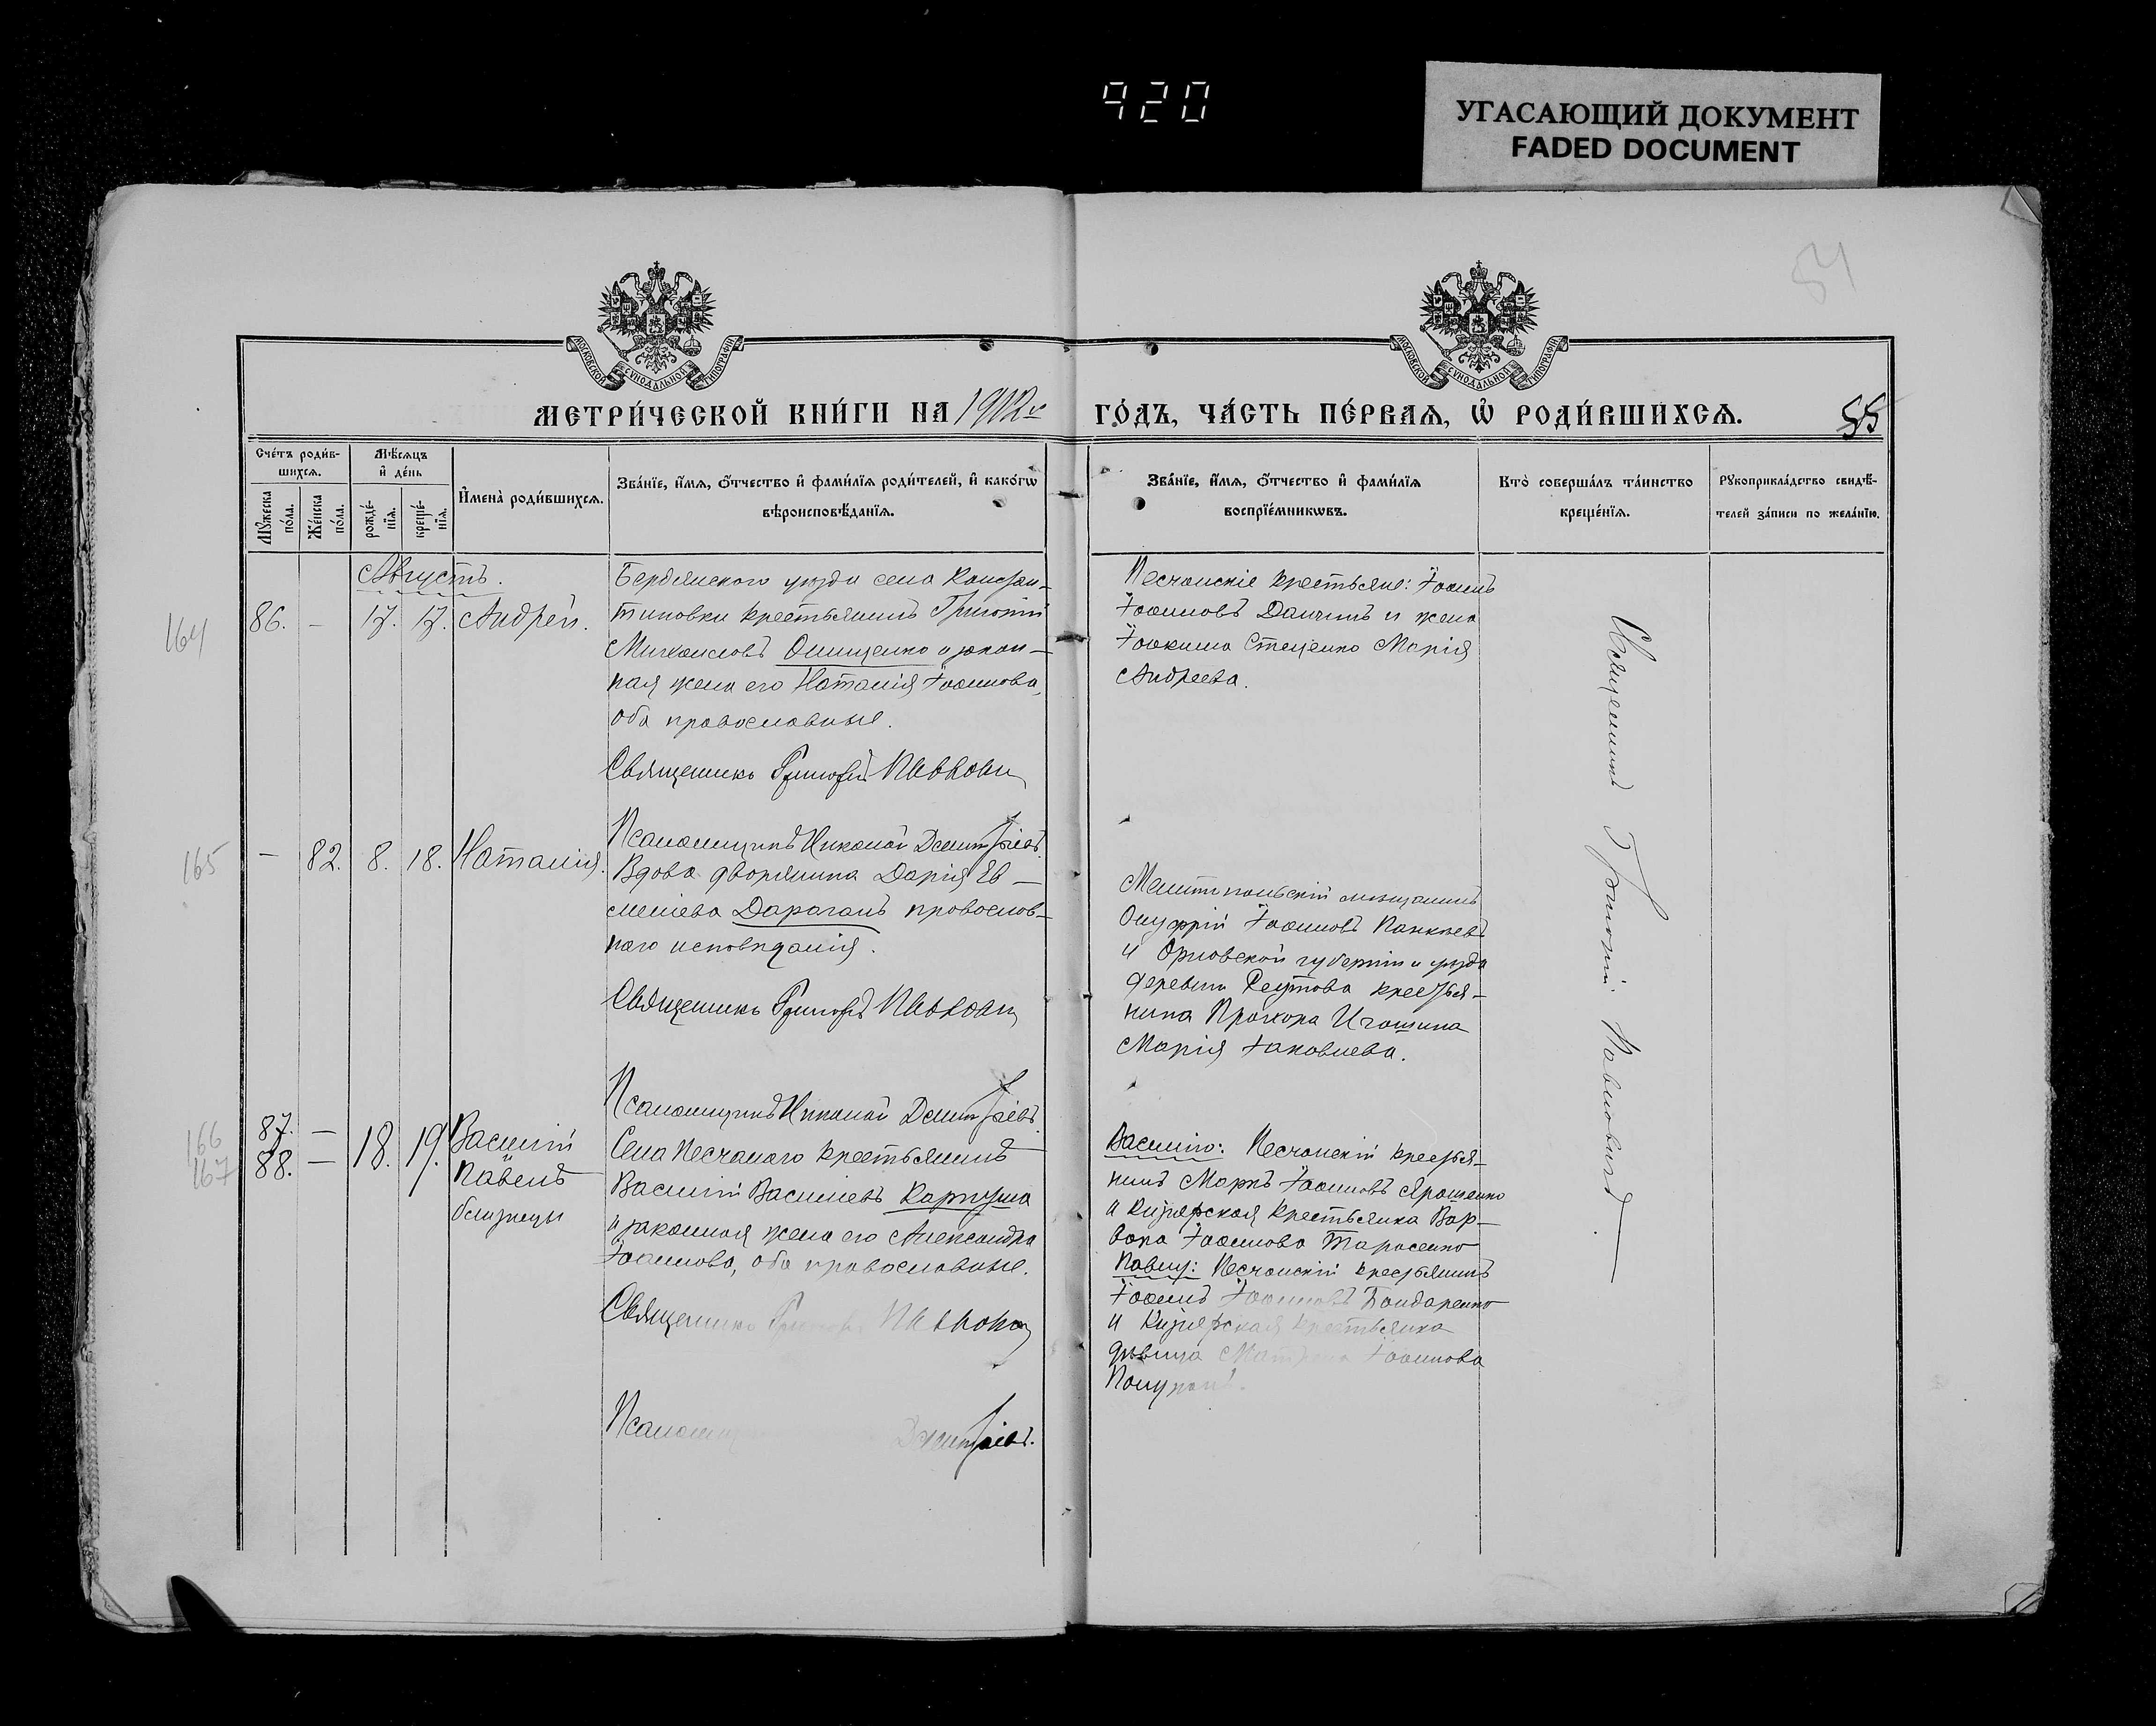 920
УГАСАЮЩИЙ ДОКУМЕНТ
FADED DOCUMENT
54
МОСКОВСКОЙ СѴНОДАЛЬНОЙ ТИПОГРАФІИ
МОСКОВСКОЙ СѴНОДАЛЬНОЙ ТИПОГРАФІИ
МЕТРИ́ЧЕСКОЙ КНИ́ГИ НА 1912 г
ГО́ДЪ, ЧА́СТЬ ПЕ́РВАѦ, Ѡ҆ РОДИ́ВШИХСѦ.
55
Сче́тъ роди́в-
шихсѧ.
Мꙋ́жеска по́ла.
Же́нска по́ла.
Мѣ́сѧцъ
и҆ де́нь
рожде́-нїѧ.
креще́-нїѧ.
И҆мена̀ роди́вшихсѧ.
Зва́нїе, и҆́мѧ, ѻ҆́тчество и҆ фами́лїѧ роди́телей, и҆ како́гѡ
вѣроисповѣ́данїѧ.
Зва́нїе, и҆́мѧ, ѻ҆́тчество и҆ фами́лїѧ
воспрїе́мникѡвъ.
Кто̀ соверша́лъ та́инство
креще́нїѧ.
Рꙋкоприкла́дство свидѣ́-
телей за́писи по жела́нїю.
Августъ.
164
86. – 17. 17. Андрей.
Бердянскаго уѣзда села Констан-
тиновки крестьянинъ Григорій
Михаиловъ Онищенко и закон-
ная жена его Наталія Іоаннова,
оба православные.
Священникъ Григорій Павлович
Псаломщикъ Николай Димитріевъ.
Песчанскіе крестьяне: Іоаннъ
Іоанновъ Данчинъ и жена
Іоакима Стеценко Марія
Андреева.
165
– 82. 8. 18. Наталія.
Вдова дворянина Дарія Ев-
сеніева Дараганъ православ-
наго исповѣданія.
Священникъ Григорій Павлович
Псаломщикъ Николай Димитріевъ.
Мелитопольскій мѣщанинъ
Онуфрій Іоанновъ Панкѣевъ
и Орловской губерніи и уѣзда
деревни Реутова крестья-
нина Прохора Игошина
Марія Іаковлева.
166
167
87. –
88. –
18. 19. Василій
и
Павелъ
близнецы
Села Песчанаго крестьянинъ
Василій Василіевъ Карпуша
и законная жена его Александра
Іоаннова, оба православные.
Священникъ Григорій Павлович
Псаломщ Димитріевъ.
Василію: Песчанскій крестья-
нинъ Маркъ Іоанновъ Ярошенко
и Кизіярская крестьянка Вар-
вара Іоаннова Тарасенко
Павлу: Песчанскій крестьянинъ
Іоаннъ Іоанновъ Бондаренко
и Кизіярская крестьянка
дѣвица Матрона Іоаннова
Священникъ Григорій Павловичъ